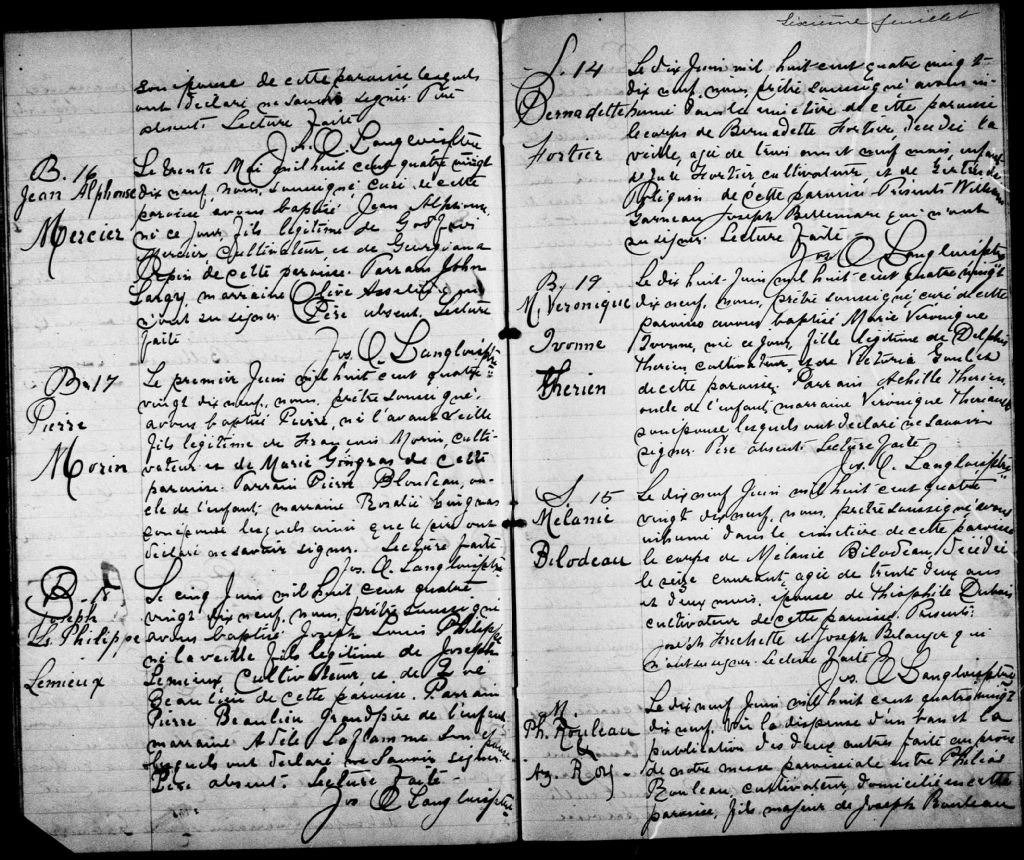 son épouse de cette paroisse lesquels
ont déclaré ne savoir signer. Père
absent. Lecture Faite
Jos. O. Langlois ptre
B. 16
Jean Alphonse
Mercier
Le trente Mai mil huit cent quatre vingt
dix neuf, nous, soussigné curé de cette
paroisse avons baptisé Jean Alphonse,
né ce jour, fils légitime de Godfroi
Mercier, cultivateur et de Georgiana
de cette paroisse. Parrain John
marraine Olive Asselin qui
n'ont su signer. Père absent. Lecture
faite
Jos. O. Langlois ptre
B. 17
Pierre
Morin
Le premier Juin mil huit cent quatre
vingt dix neuf, nous, prêtre soussigné,
avons baptisé Pierre, né l'avant veille
fils légitime de François Morin, culti-
vateur et de Marie Gongras de cette
paroisse. Parrain Pierre Blondeau, on-
cle de l'enfant, marraine Rosalie Gingras
son épouse lesquels ainsi que le père ont
déclaré ne savoir signer. Lecture faite
Jos. O. Langlois ptre
B. 18
Joseph
Ls Philippe
Lemieux
Le cinq Juin mil huit cent quatre
vingt dix neuf, nous, prêtre soussigné
avons baptisé Joseph Louis Philippe
né la veille fils légitime de Joseph
Lemieux, Cultivateur et de
Beaulieu de cette paroisse. Parrain
Pierre Beaulieu Grandpère de l'enfant
marraine Adèle Laflamme son épouse
lesquels ont déclaré ne savoir signer.
Père absent. Lecture Faite
Jos O Langlois ptre
Sixième feuillet
S. 14
Bernadette
Fortier
Le dix Juin mil huit cent quatre vingt
dix neuf, nous, prêtre soussigné avons in-
humé dans le cimetière de cette paroisse
le corps de Bernadette Fortier, décédée la
veille, agée de trois ans et neuf mois, enfant
de Fortier cultivateur, et de
de cette paroisse. Présents William
Garneau Joseph Bellemare qui n'ont
su signer. Lecture Faite
Jos O Langlois ptre
B. 19
M. Véronique
Ivonne
Therien
Le dix huit Juin mil huit cent quatre vingt
dix neuf, nous, prêtre soussigné curé de cette
paroisse avons baptisé Marie Véronique
Ivonne, née ce jour, fille légitime de Delphis
Therien cultivateur, et de Victoria Goulet
de cette paroisse. Parrain Achille Therien,
oncle de l'enfant, marraine Véronique Theriault
son épouse lesquels ont déclaré ne savoir
signer. Père absent. Lecture Faite
Jos. O. Langlois ptre
S. 15
Mélanie
Bilodeau
Le dix neuf Juin mil huit cent quatre
vingt dix neuf, nous, prêtre soussigné avons
inhumé dans le cimetière de cette paroisse
le corps de Mélanie Bilodeau, décédée
le seize courant, agée de trente deux ans
et deux mois, épouse de Théophile Dubois
cultivateur de cette paroisse. Présents:
Joseph Frechette et Joseph Belanger qui
n'ont su signer. Lecture Faite
Jos. O Langlois ptre
M.
Ph. Rouleau
Az. Roy
Le dix neuf Juin mil huit cent quatre vingt
dix neuf. Vu la dispense d'un ban et la
publication des deux autres faite au prône
de notre messe paroissiale entre Philias
Rouleau, cultivateur, domicilié en cette
paroisse, fils majeur de Joseph Rouleau